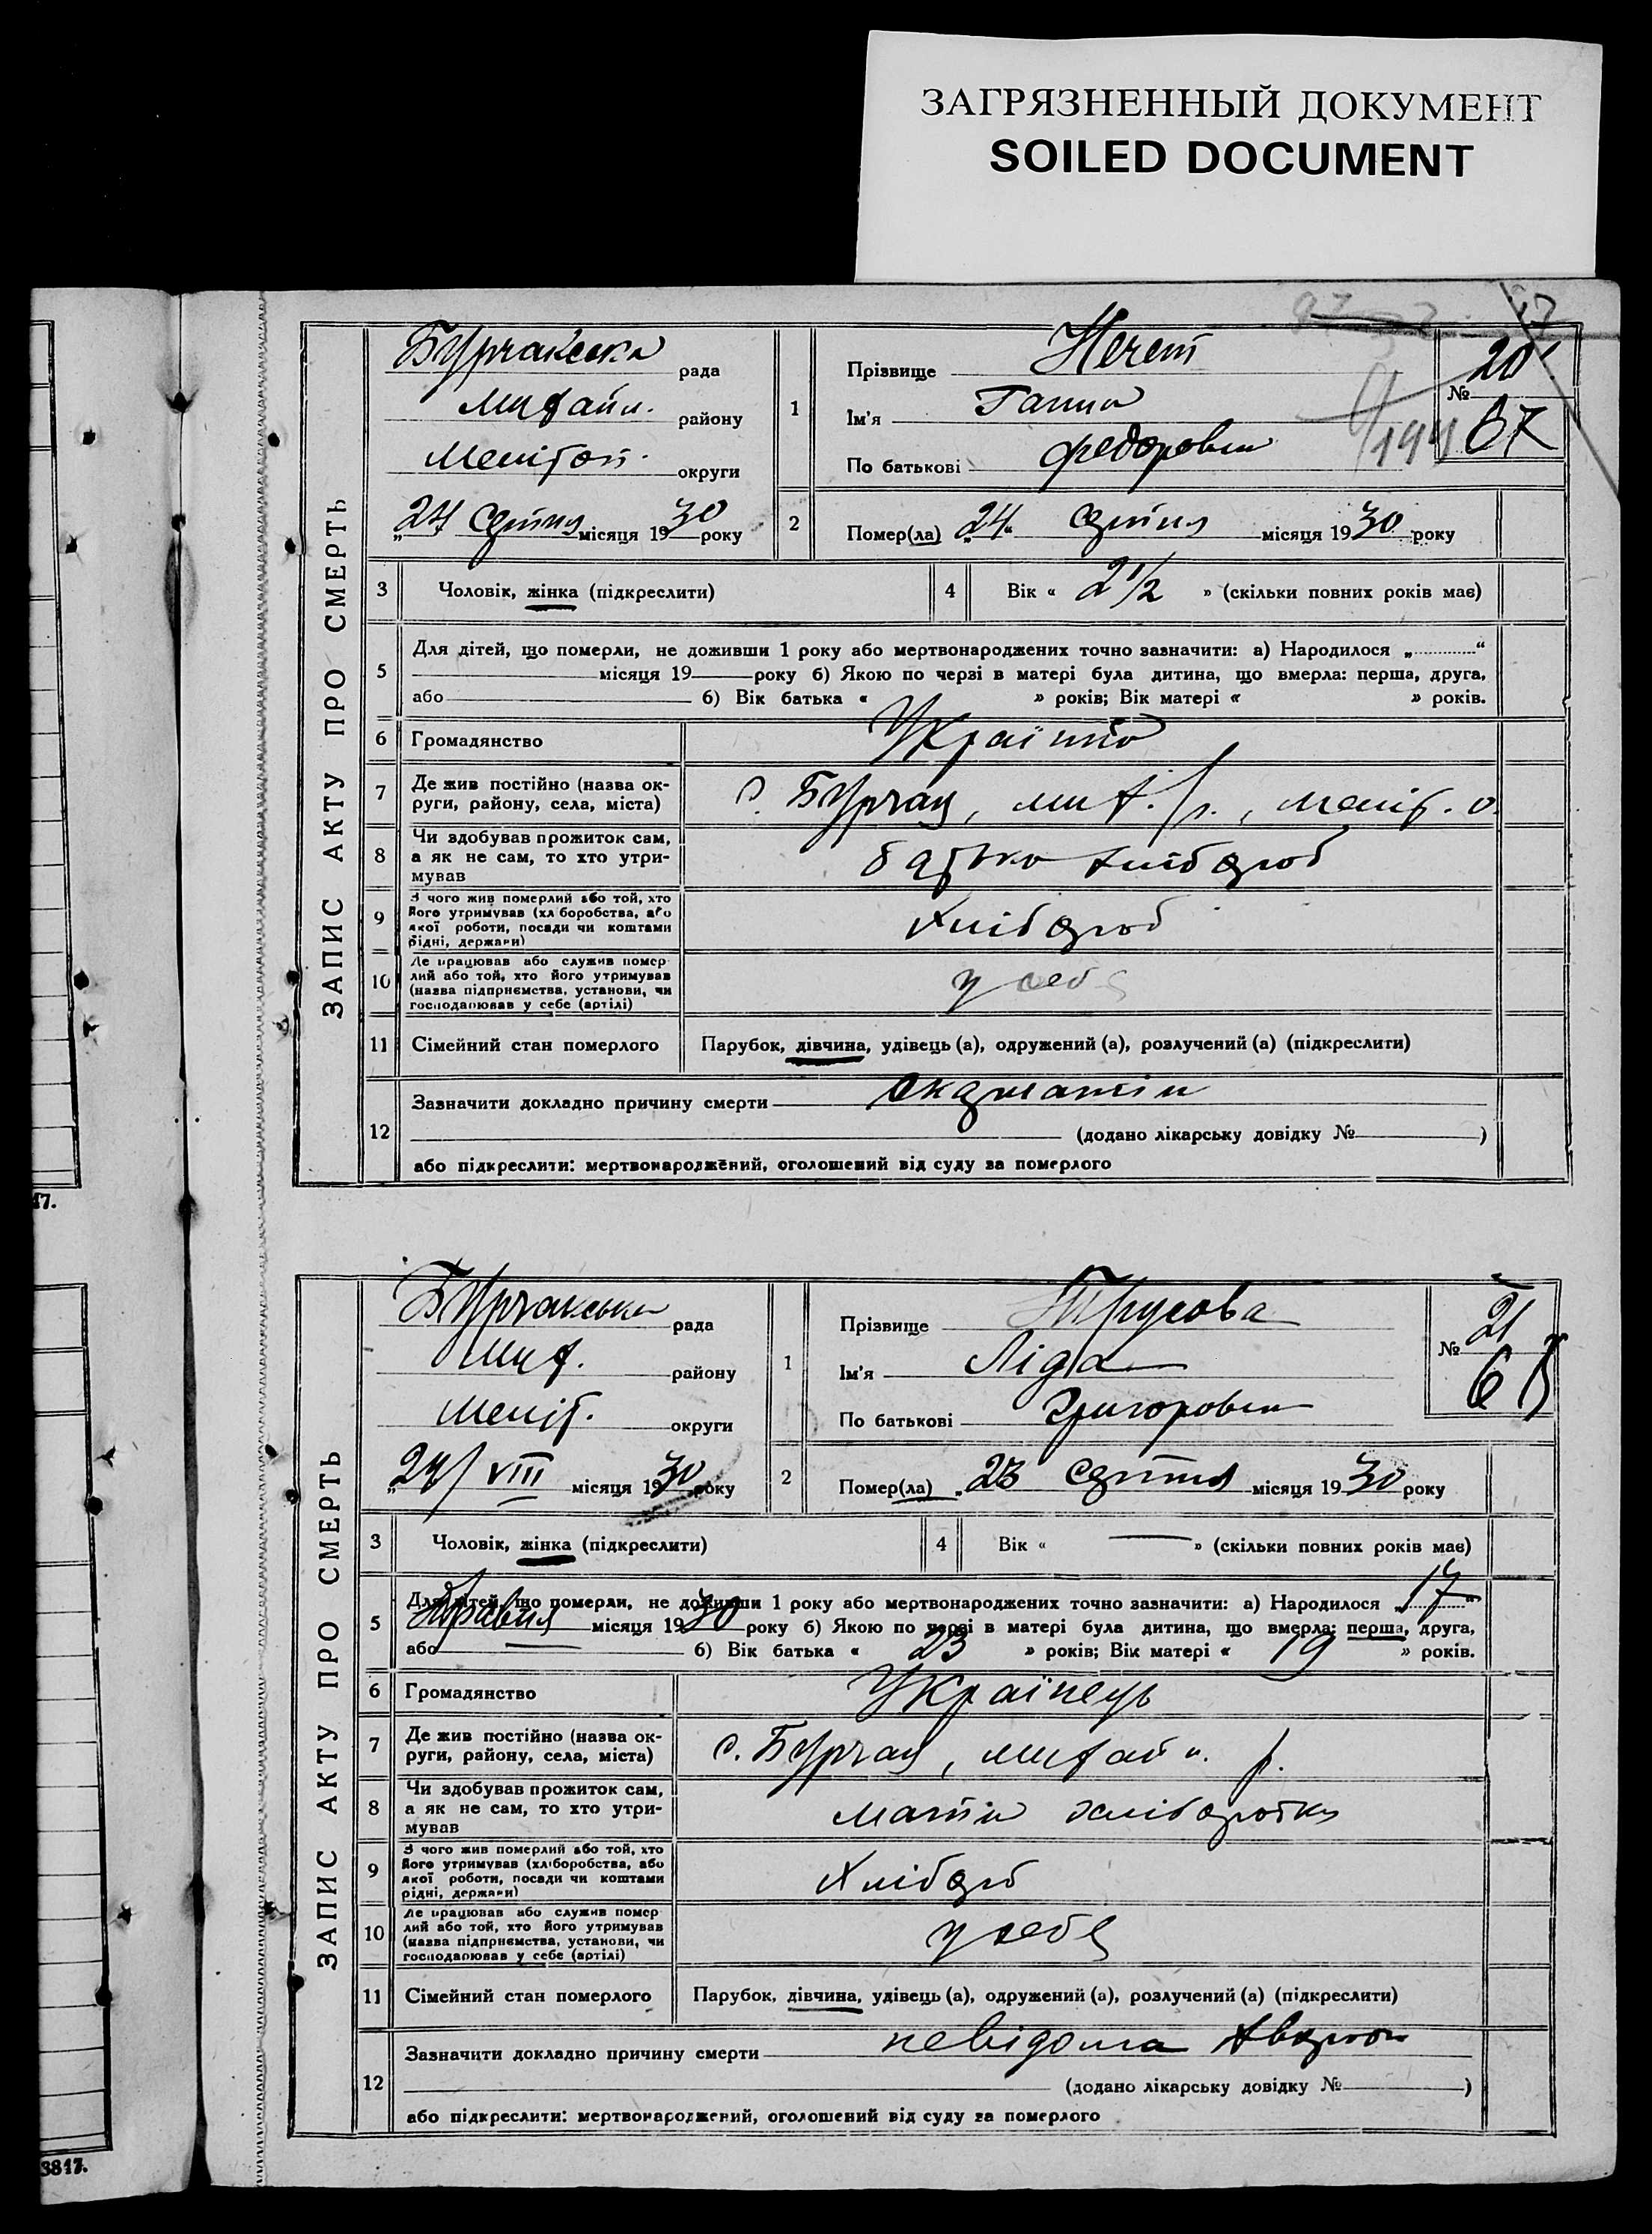 ЗАГРЯЗНЕННЫЙ ДОКУМЕНТ
SOILED DOCUMENT
17.
3817.
ЗАПИС АКТУ ПРО СМЕРТЬ
Бурчакська рада
Михайл. району
Меліտոп. округи
„24 серпня місяця 1930 року
1
Прізвище Нечет
Ім'я Ганна
По батькові Федоровна
№ 20
67
2
Помер(ла) „24“ серпня місяця 1930 року
3 Чоловік, жінка (підкреслити)
4 Вік « 2 1/2 » (скільки повних років має)
5 Для дітей, що померли, не доживши 1 року або мертвонароджених точно зазначити: а) Народилося „ “
місяця 19 року б) Якою по черзі в матері була дитина, що вмерла: перша, друга,
або б) Вік батька « » років; Вік матері « » років.
6 Громадянство
7 Де жив постійно (назва округи, району, села, міста) с. Бурчак, мих. р., меліт. о.
8 Чи здобував прожиток сам,
а як не сам, то хто утри-
мував батько хлібороб
9 З чого жив померлий або той, хто
його утримував (хліборобства, або
якої роботи, посади чи коштами
рідні, держави) Хлібороб
10 Де працював або служив помер-
лий або той, хто його утримував
(назва підприємства, установи, чи
господарював у себе (артілі) у себе
11 Сімейний стан померлого Парубок, дівчина, удівець (а), одружений (а), розлучений (а) (підкреслити)
12 Зазначити докладно причину смерти
(додано лікарську довідку № )
або підкреслити: мертвонароджений, оголошений від суду за померлого
ЗАПИС АКТУ ПРО СМЕРТЬ
Бурчакська рада
Мих. району
Меліт. округи
„24/VIII місяця 1930 року
1
Прізвище Трусова
Ім'я Ліда
По батькові Григоровна
№ 21
68
2
Помер(ла) „23 серпня місяця 1930 року
3 Чоловік, жінка (підкреслити)
4 Вік « — » (скільки повних років має)
5 Для дітей, що померли, не доживши 1 року або мертвонароджених точно зазначити: а) Народилося „17“
травня місяця 1930 року б) Якою по черзі в матері була дитина, що вмерла: перша, друга,
або — б) Вік батька « 23 » років; Вік матері « 19 » років.
6 Громадянство Українець
7 Де жив постійно (назва ок-
руги, району, села, міста) с. Бурчак, михайл. р.
8 Чи здобував прожиток сам,
а як не сам, то хто утри-
мував мати хліборобка
9 З чого жив померлий або той, хто
його утримував (хліборобства, або
якої роботи, посади чи коштами
рідні, держави) Хлібороб
10 Де працював або служив помер-
лий або той, хто його утримував
(назва підприємства, установи, чи
господарював у себе (артілі) у себе
11 Сімейний стан померлого Парубок, дівчина, удівець (а), одружений (а), розлучений (а) (підкреслити)
12 Зазначити докладно причину смерти невідома
(додано лікарську довідку № )
або підкреслити: мертвонароджений, оголошений від суду за померлого